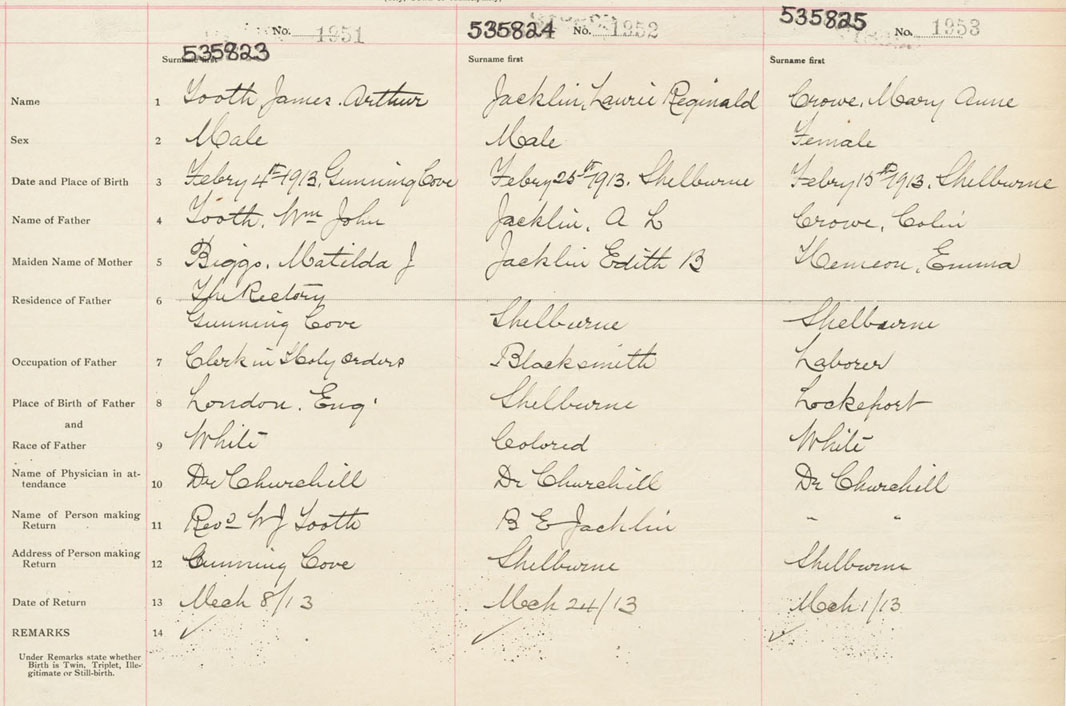 No. 1951 535824 No. 1952 535825 No. 1953
535823
Surname first Surname first Surname first
Name 1 Tooth James. Arthur Jacklin, Laurie Reginald Crowe, Mary Anne
Sex 2 Male Male Female
Date and Place of Birth 3 Febry 4th 1913, Gunning Cove Febry 25th 1913. Shelburne Febry 15th 1913. Shelburne
Name of Father 4 Tooth. Wm John Jacklin, A L Crowe, Colin
Maiden Name of Mother 5 Biggs, Matilda J Jacklin Edith B Hemeon, Emma
Residence of Father 6 The Rectory
Gunning Cove Shelburne Shelburne
Occupation of Father 7 Clerk in Holy Orders Blacksmith Laborer
Place of Birth of Father 8 London. Eng' Shelburne Lockeport
and
Race of Father 9 White Colored White
Name of Physician in at-
tendance 10 Dr Churchill Dr Churchill Dr Churchill
Name of Person making
Return 11 Revd W J Tooth B E Jacklin " "
Address of Person making
Return 12 Gunning Cove Shelburne Shelburne
Date of Return 13 Mch 8/13 Mch 24/13 Mch 1/13
REMARKS 14 ✓ ✓ ✓
Under Remarks state whether
Birth is Twin, Triplet, Ille-
gitimate or Still-birth.